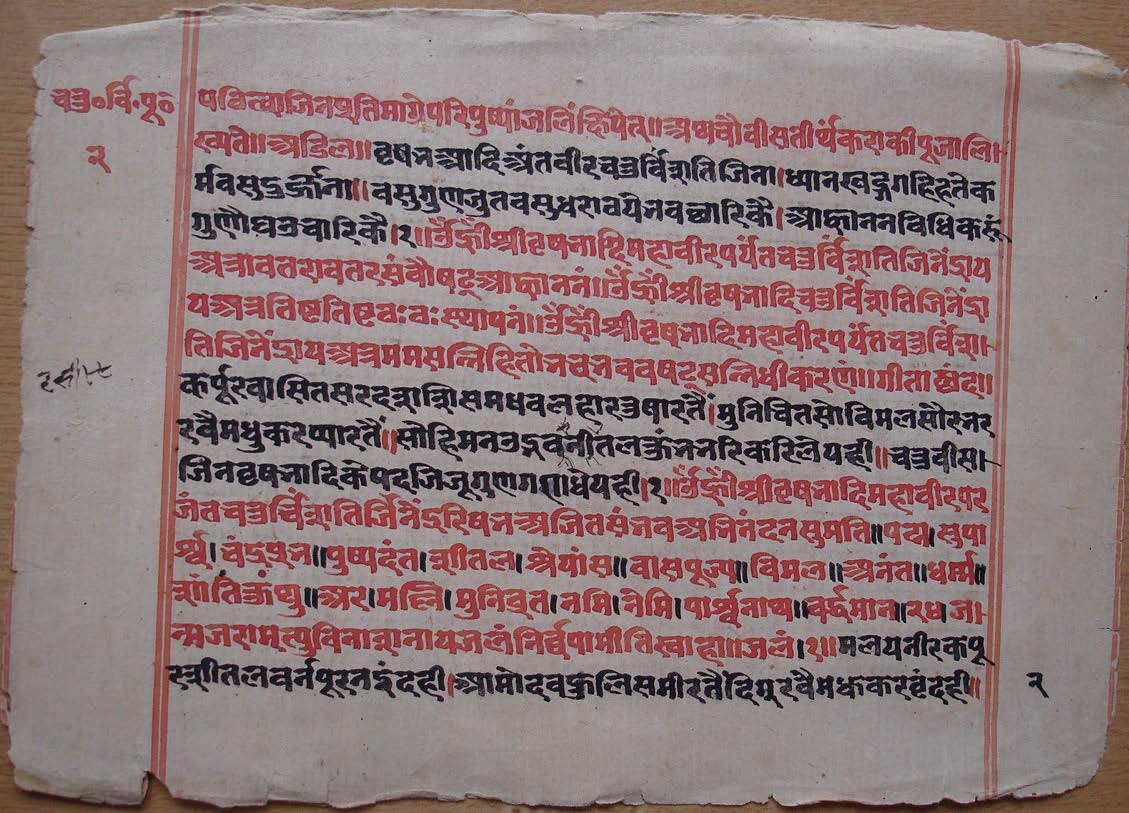 चउ०र्वि॰पू०
२
पवित्वाजिनप्रतिमाग्रेपरिपुष्पांजलिंक्षिपेत्॥अथचौवीसतीर्थंकराकीपूजालि।
ख्यते॥अडिल॥वृषभआदिअंतवीरचउर्विशतिजिना।ध्यानखड्गगहिहतेक
र्मवसुदुर्जना॥वसुगुणजुतवसुधरावयेनवछारिकै।आह्वाननविधिकरूं
गुणौघउचारिकै।१॥ॐह्रीँश्रीवृषभादिमहावीरपर्यंतचउर्विशतिजिनेंद्राय
अत्रावतरावतरसंवौषट्आह्वाननं॥ॐह्रीँश्रीवृषभादिचउर्विशतिजिनेंद्रा
यअत्रतिष्टतिष्टठःठःस्थापनं॥ॐह्रीँश्रीवृषभादिमहावीरपर्यंतचउर्विश।
तिजिनेंद्रायअत्रममसन्निहितोभवभवववषट्सन्निधीकरणं॥गीताछंद॥
कर्पूरवासितसरदशशिसमधवलहारउषारतैं।मुनिचितसोविमलसौरभर
रवैमधुकरप्यारतैं॥सोहिमनउद्भवनीतलकुंभनभरिकरिलेयही॥चउवीस।
जिनवृषभादिकेपदजिजूगुणगणधेयही।१॥ॐह्रीँश्रीवृषभादिमहावीरपर
जंतचउर्विशतिर्जिनेंद्ररिषभअजितसंभवअभिनंदनसुमति॥पद्म।सुपा
र्श्व।चंद्रप्रभ॥पुष्पदंत।शीतल।श्रेयांस॥वासपूज्य॥विमल॥अनंत॥धर्म्म॥
शांतिकुंथु॥अर।मल्लि।मुनिव्रत।नमि।नेमि।पार्श्वनाथ॥वर्द्धमान॥२४ज।
न्मजरामृत्युविनाशनायजलंनिर्वपामीतिस्वाहा॥जलं।१॥मलयनीरकपू
रशीतलवर्नपूरनइंदही।आमोदवकुलिसमीरतैंदिगुरवैमधकरवृंदही॥
२